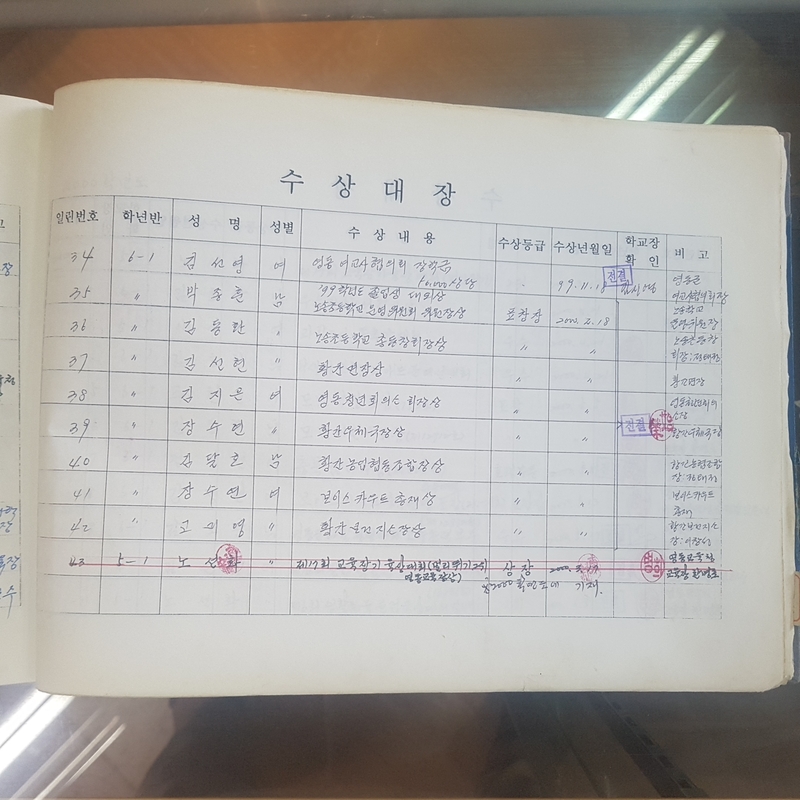 수 상 대 장
일련번호 학년반 성 명 성별 수 상 내 용 수상등급 수상년월일 학교장 확 인 비 고
34 6-1 김선영 여 영동 여교사협의회 장학금 99. 11. 18 전결 영동군
35 〃 박종훈 남 '99학년도 졸업생 대외상 여교사협의회장
노송초등학교 운영위원회 위원장상 표창장 2000. 2. 18 노송학교 운영위원장
36 〃 김동한 〃 노송초등학교 총동창회장상 〃 〃
37 〃 김선현 〃 황간면장상 〃 〃 황간면장
38 〃 김지은 여 영동청년회의소 회장상 〃 〃
39 〃 장수연 〃 황간우체국장상 〃 〃 전결 황간우체국장
40 〃 김달호 남 황간농업협동조합장상 〃 〃
41 〃 장수연 여 보이스카우트 총재상 〃 〃 보이스카우트 총재
42 〃 고미영 〃 황간보건지소장상 〃 〃
43 5-1 노 〃 제17회 교육장기 육상대회(멀리뛰기 2위) 상장 영동교육청
영동교육장상) ※2000학년도에 기재. 교육장